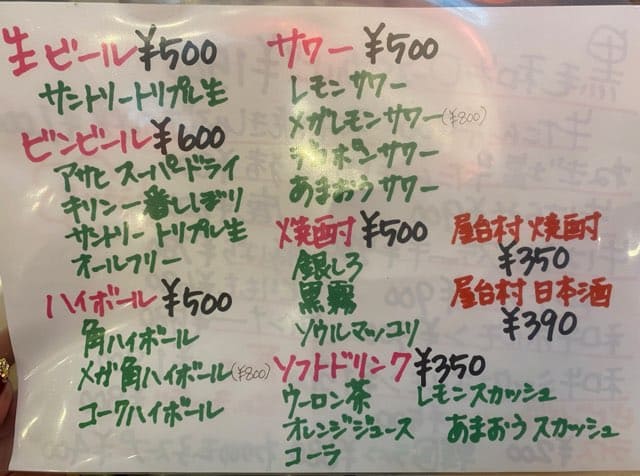 生ビール ¥500
サントリートリプル生
ビンビール ¥600
アサヒスーパードライ
キリン一番しぼり
サントリートリプル生
オールフリー
ハイボール ¥500
角ハイボール
メガ角ハイボール(¥800)
コークハイボール
サワー ¥500
レモンサワー
メガレモンサワー(¥800)
デコポンサワー
あまおうサワー
焼酎 ¥500
銀しろ
黒霧
ソウルマッコリ
屋台村 焼酎
¥350
屋台村 日本酒
¥390
ソフトドリンク ¥350
ウーロン茶 レモンスカッシュ
オレンジジュース あまおうスカッシュ
コーラ